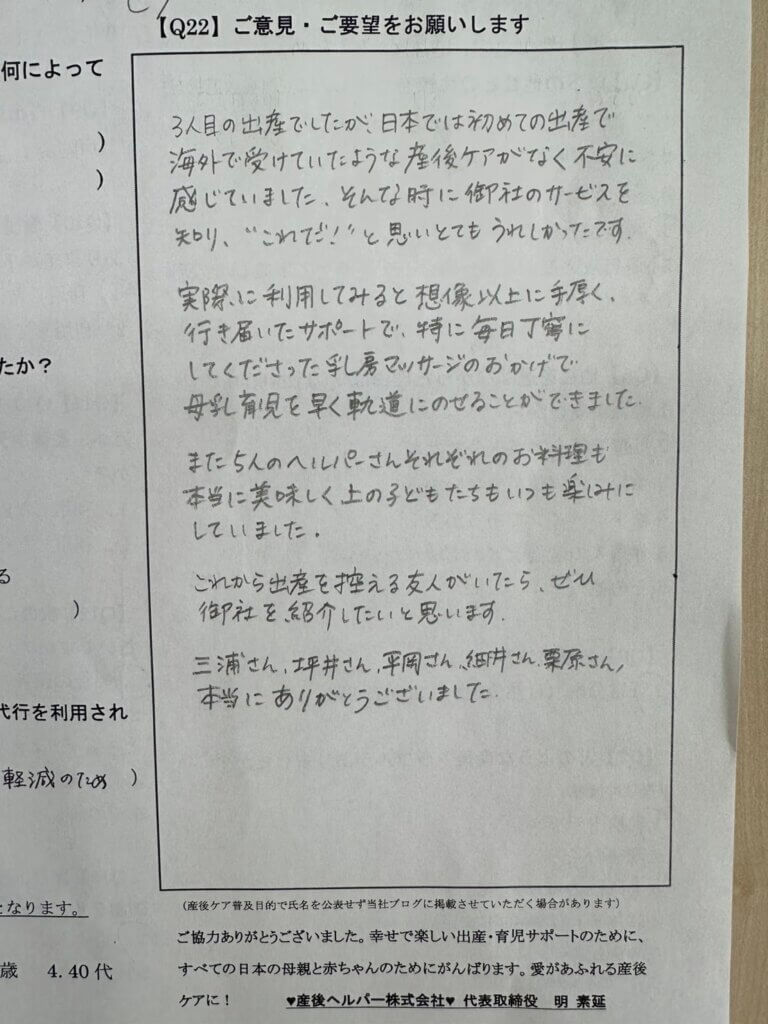 【Q22】ご意見・ご要望をお願いします
何によって
)
)
3人目の出産でしたが、日本では初めての出産で
海外で受けていたような産後ケアがなく不安に
感じていました、そんな時に御社のサービスを
知り、“これだ!”と思いとてもうれしかったです.
実際に利用してみると想像以上に手厚く、
行き届いたサポートで、特に毎日丁寧に
してくださった乳房マッサージのおかげで
母乳育児を早く軌道にのせることができました.
たか？
また5人のヘルパーさんそれぞれのお料理も
本当に美味しく上の子どもたちもいつも楽しみに
していました.
る
これから出産を控える友人がいたら、ぜひ
)
御社を紹介したいと思います.
三浦さん、坪井さん、平岡さん、細井さん、栗原さん、
本当にありがとうございました.
代行を利用され
軽減のため )
となります。
(産後ケア普及目的で氏名を公表せず当社ブログに掲載させていただく場合があります)
ご協力ありがとうございました。幸せで楽しい出産・育児サポートのために、
すべての日本の母親と赤ちゃんのためにがんばります。愛があふれる産後
歳 4.40代
ケアに！ ♥産後ヘルパー株式会社♥ 代表取締役 明 素延